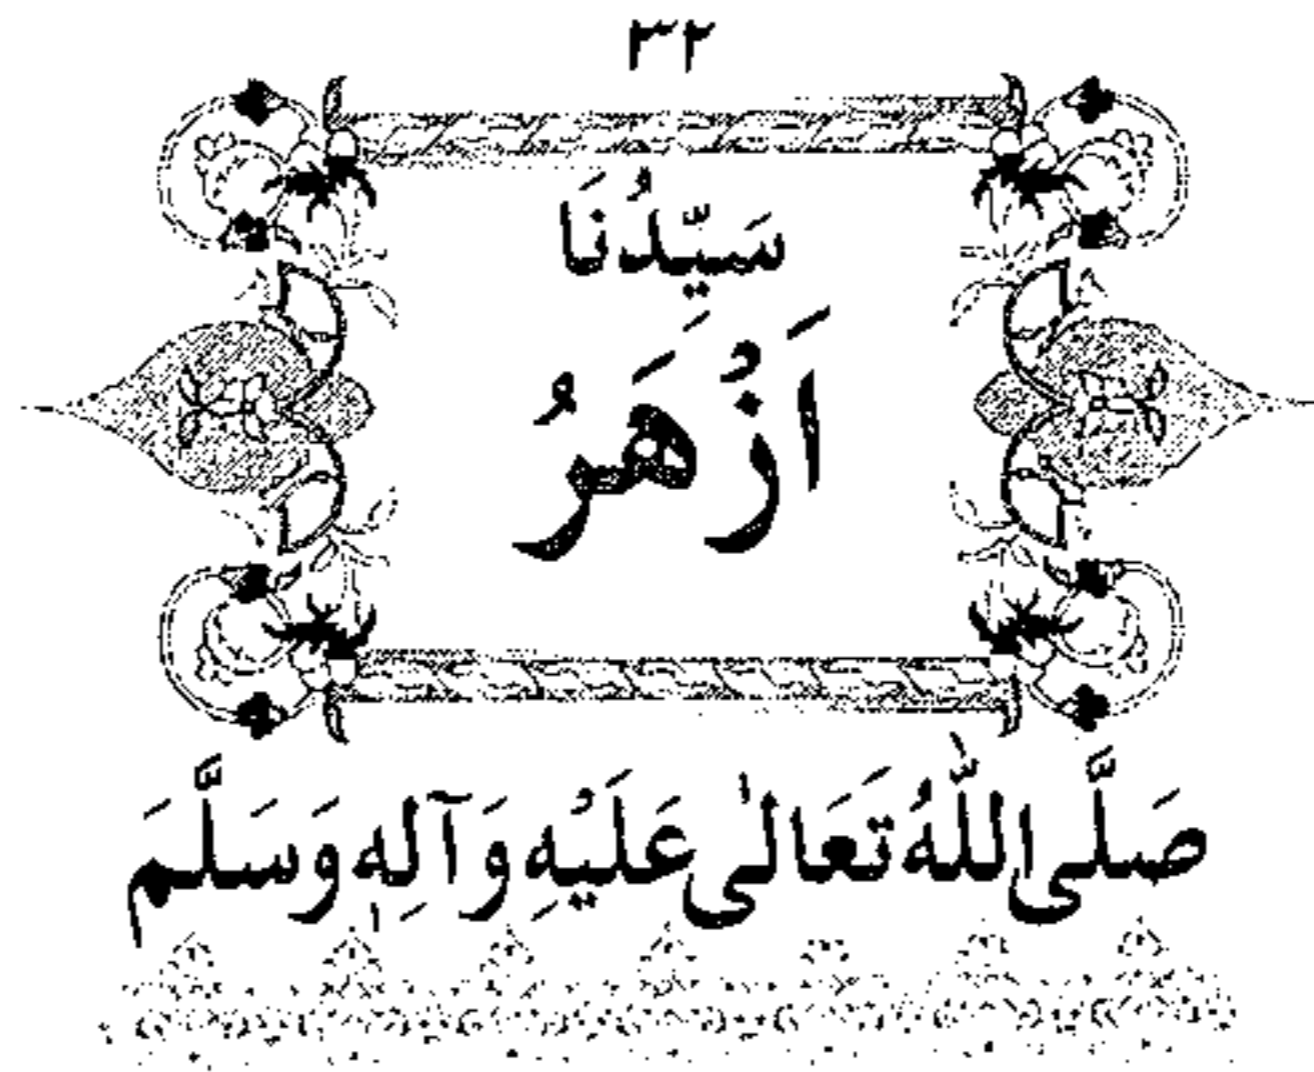 ٣٢
سَيِّدُنَا
اَزْهَرُ
صَلَّى اللّٰهُ تَعَالٰى عَلَيْهِ وَآلِهٖ وَسَلَّمَ